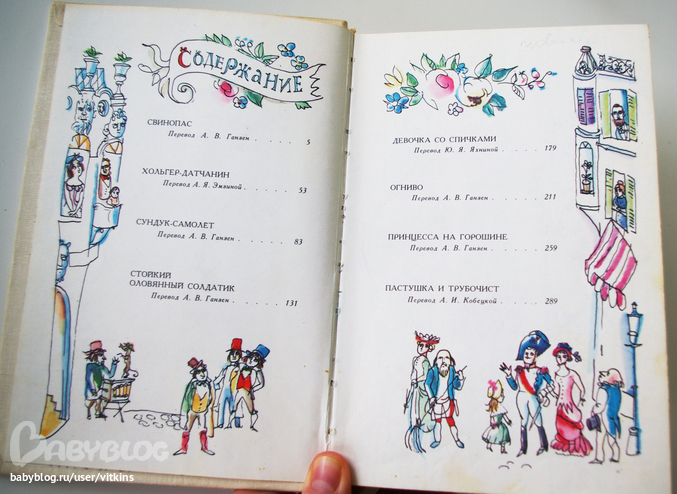 Содержание
СВИНОПАС
Перевод А. В. Ганзен . . . . 5
ХОЛЬГЕР-ДАТЧАНИН
Перевод А. Я. Эмзиной . . . . 53
СУНДУК-САМОЛЕТ
Перевод А. В. Ганзен . . . . . 83
СТОЙКИЙ
ОЛОВЯННЫЙ СОЛДАТИК
Перевод А. В. Ганзен . . . . . 131
ДЕВОЧКА СО СПИЧКАМИ
Перевод Ю. Я. Яхниной . . . . 179
ОГНИВО
Перевод А. В. Ганзен . . . . . 211
ПРИНЦЕССА НА ГОРОШИНЕ
Перевод А. В. Ганзен . . . . . 259
ПАСТУШКА И ТРУБОЧИСТ
Перевод А. И. Кобецкой . . . . 289
BABYBLOG
babyblog.ru/user/vitkins